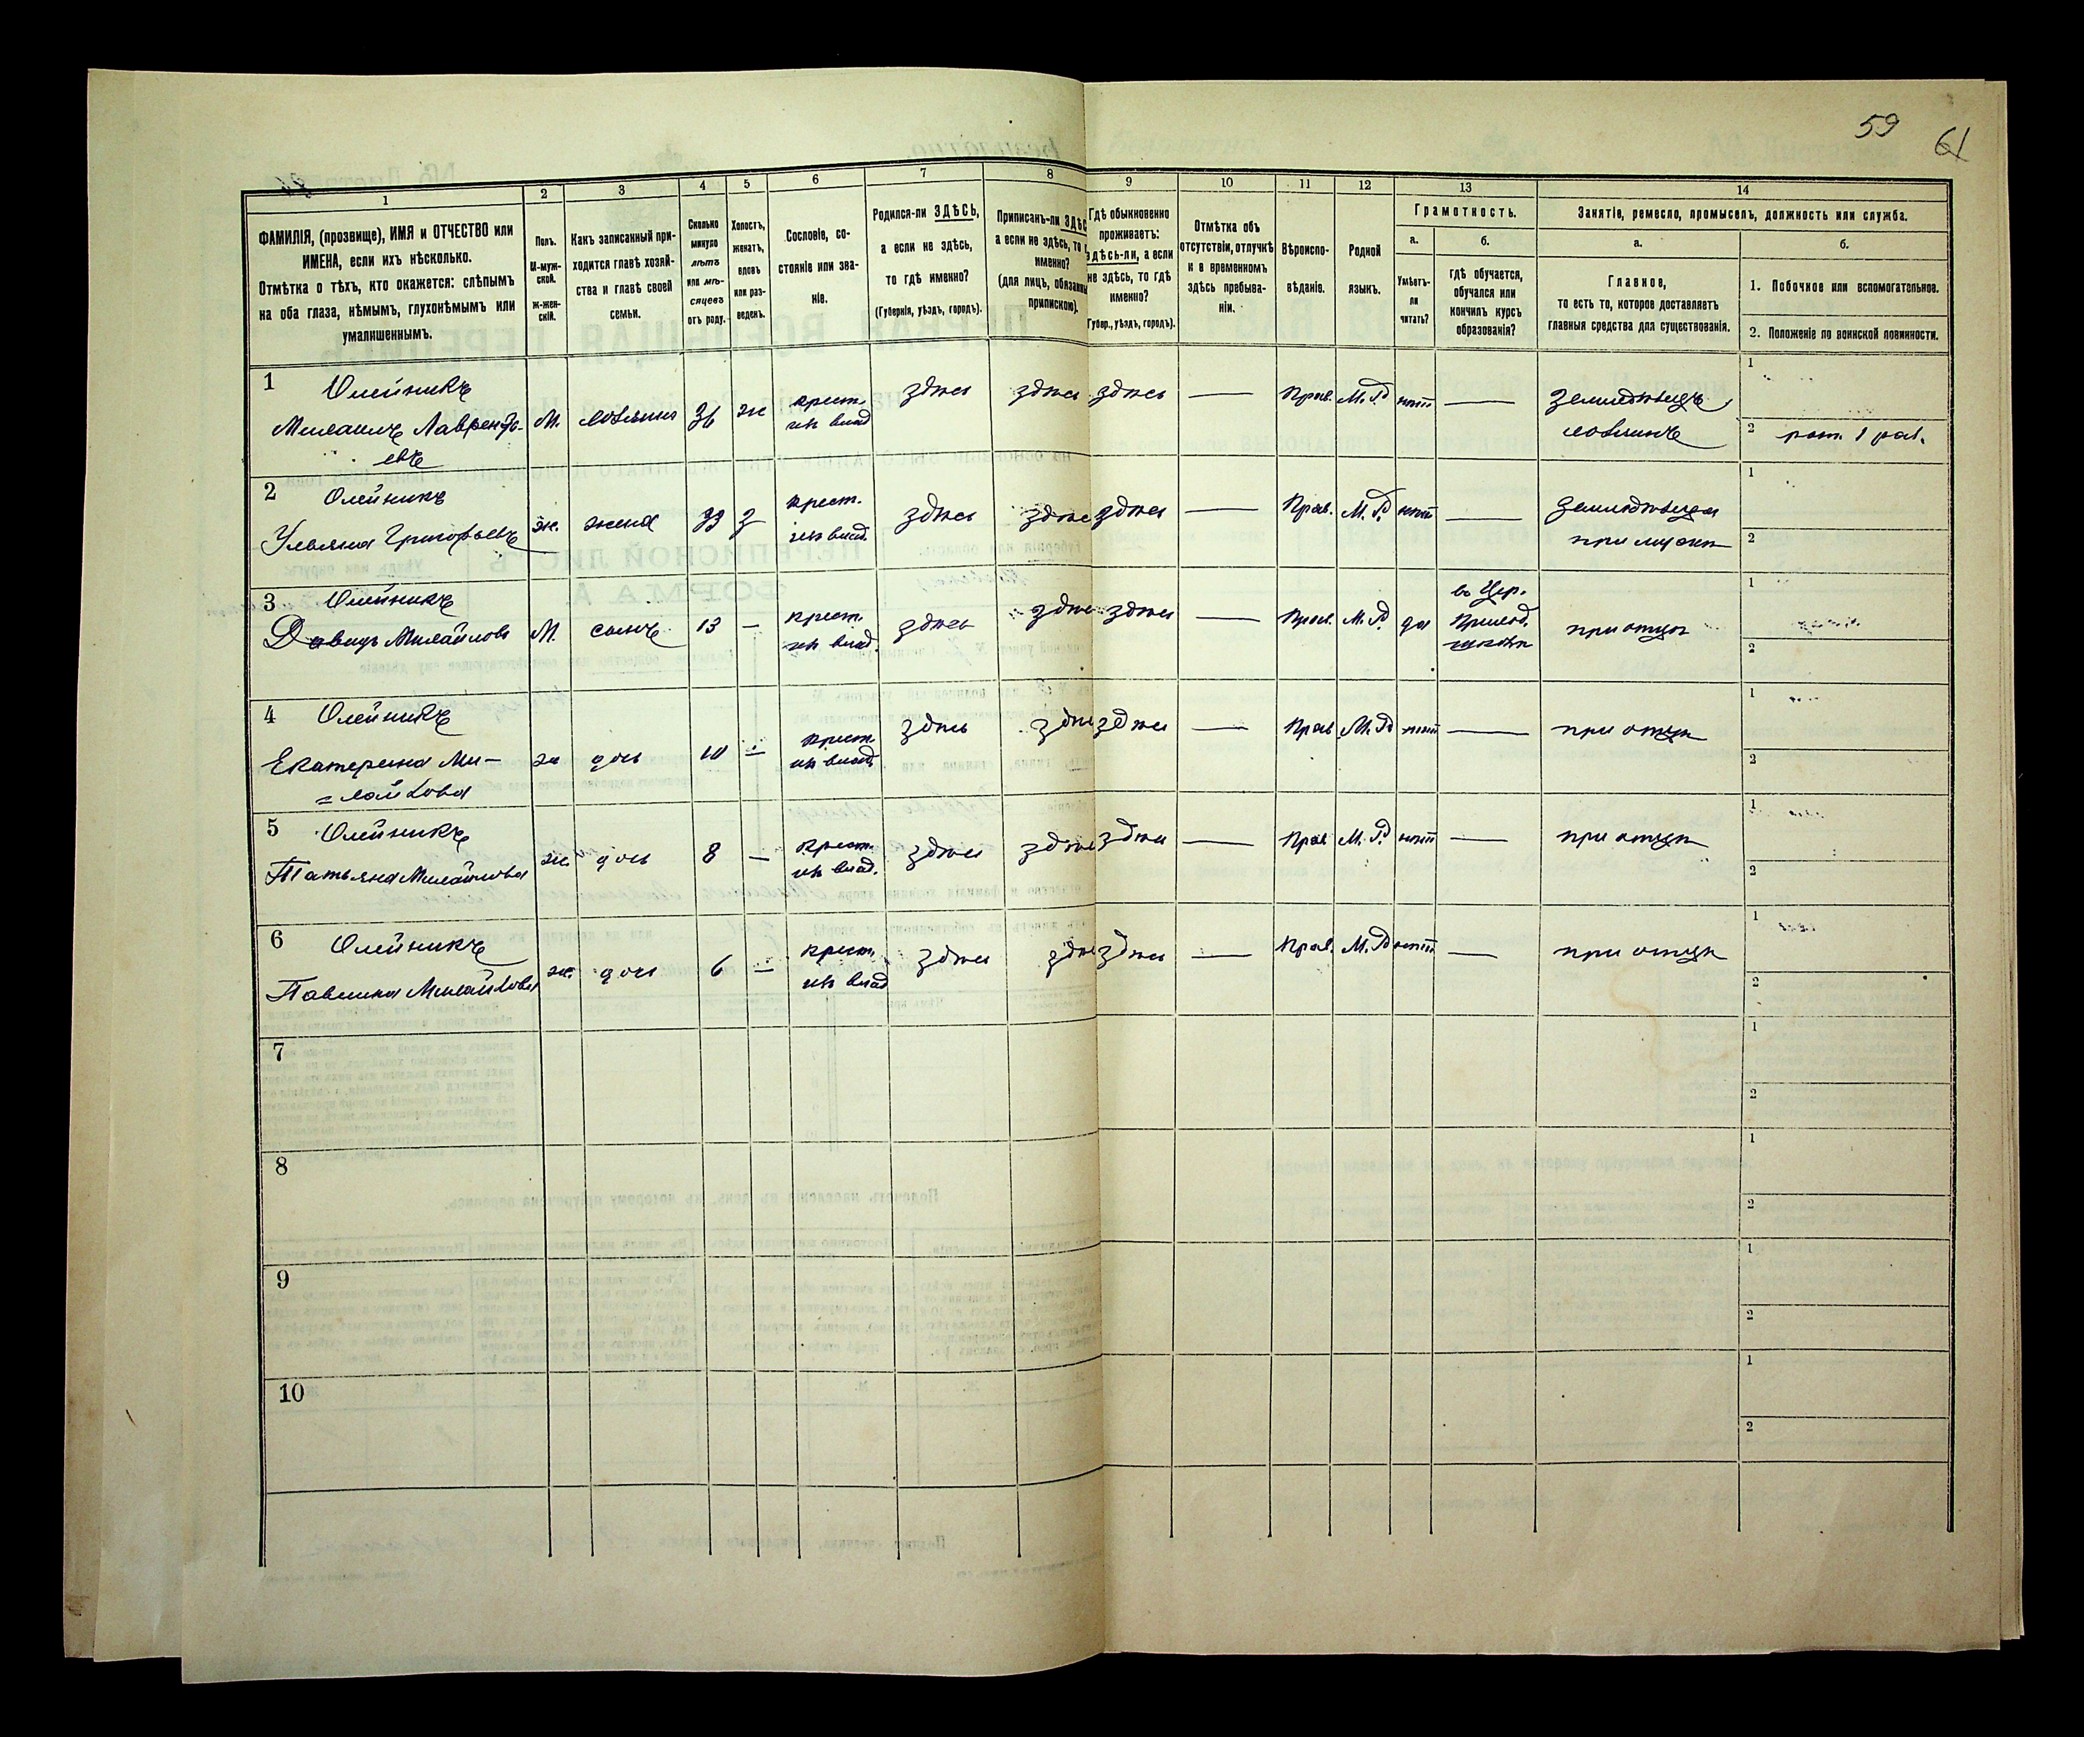 59
61
1
2
3
4
5
6
7
8
9
10
11
12
13
14
ФАМИЛІЯ, (прозвище), ИМЯ и ОТЧЕСТВО или
ИМЕНА, если ихъ нѣсколько.
Отмѣтка о тѣхъ, кто окажется: слѣпымъ
на оба глаза, нѣмымъ, глухонѣмымъ или
умалишеннымъ.
Полъ.
М-муж-
ской.
Ж-жен-
скій.
Какъ записанный при-
ходится главѣ хозяй-
ства и главѣ своей
семьи.
Сколько
минуло
лѣтъ
или мѣ-
сяцевъ
отъ роду.
Холостъ,
женатъ,
вдовъ
или раз-
веденъ.
Сословіе, со-
стояніе или зва-
ніе.
Родился-ли ЗДѢСЬ,
а если не здѣсь,
то гдѣ именно?
(Губернія, уѣздъ, городъ).
Приписанъ-ли ЗДѢС
а если не здѣсь, то
именно?
(для лицъ, обязанны
припискою).
Гдѣ обыкновенно
проживаетъ:
здѣсь-ли, а если
не здѣсь, то гдѣ
именно?
Губер., уѣздъ, городъ).
Отмѣтка объ
отсутствіи, отлучкѣ
и о временномъ
здѣсь пребыва-
ніи.
Вѣроиспо-
вѣданіе.
Родной
языкъ.
Грамотность.
а.
Умѣетъ-
ли
читать?
б.
гдѣ обучается,
обучался или
кончилъ курсъ
образованія?
Занятіе, ремесло, промыселъ, должность или служба.
а.
Главное,
то есть то, которое доставляетъ
главныя средства для существованія.
б.
1. Побочное или вспомогательное.
2. Положеніе по воинской повинности.
1 Олейникъ
Михаилъ Лаврентъ-
евъ
М. хозяинъ 36 ж крест. изъ влад здѣсь здѣсь здѣсь — Прав. М.Р. нѣтъ — Земледѣлецъ хозяинъ
1
2 рат. 1 раз.
2 Олейникъ
Ульяна Григорьевъ
ж. жена 33 з крест. изъ влад. здѣсь здѣс здѣсь — Прав. М.Р. нѣтъ — Земледѣлица при мужѣ
1
2
3 Олейникъ
Давидъ Михайловъ
М. сынъ 13 — крест. изъ влад. здѣсь здѣс здѣсь — Прав. М.Р. да въ Цер. Приход. школѣ при отцѣ
1
2
4 Олейникъ
Екатерина Ми-
=хайлова
ж дочь 10 — крест. изъ влад. здѣсь здѣс здѣсь — Прав М.Р нѣтъ — при отцѣ
1
2
5 Олейникъ
Татьяна Михайлова
ж. дочь 8 — крест. изъ влад. здѣсь здѣс здѣсь — Прав М.Р. нѣтъ — при отцѣ
1
2
6 Олейникъ
Павлина Михайлова
ж. дочь 6 — крест. изъ влад здѣсь здѣс здѣсь — Прав. М.Р. нѣтъ — при отцѣ
1
2
7
1
2
8
1
2
9
1
2
10
1
2